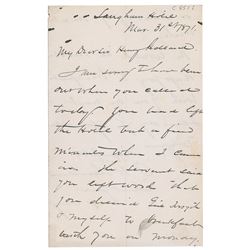 Langham Hotel
Mar. 31st 1871.
My Dear Sir Henry Holland
I am sorry I have been
out when you called
today. You had left
the Hotel but a few
minutes when I came
in. The servant said
you left word that
you desired
& myself to breakfast
with you on Monday